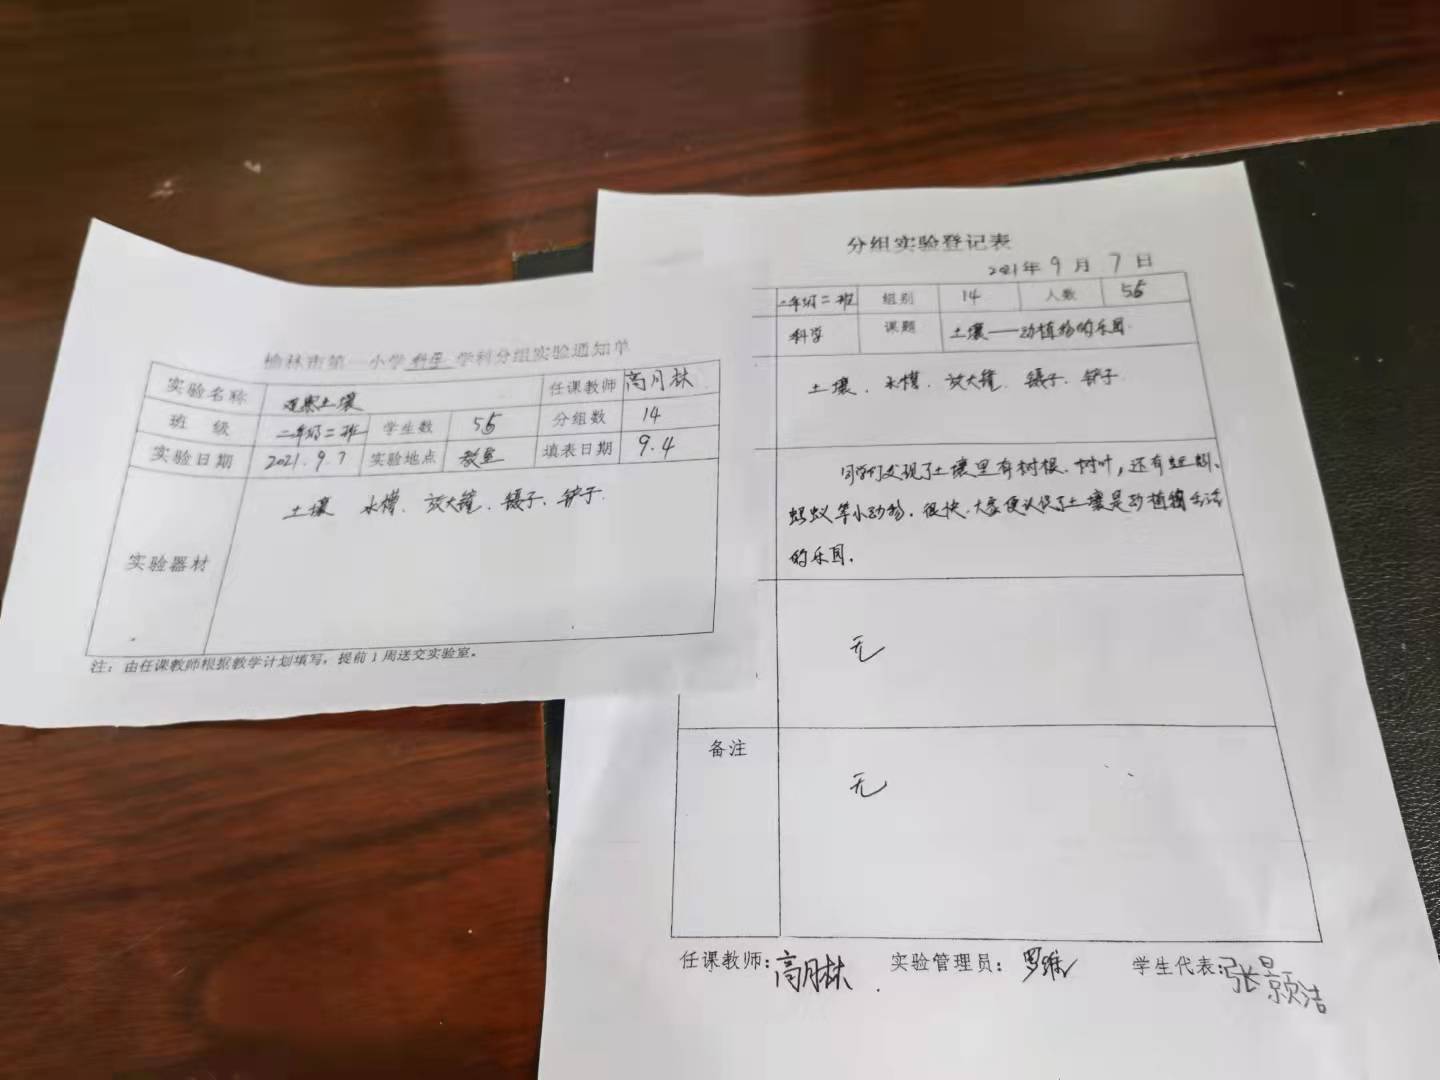 榆林市第一小学科学学科分组实验通知单
实验名称 观察土壤 任课教师 高月林
班 级 二年级二班 学生数 55 分组数 14
实验日期 2021.9.7 实验地点 教室 填表日期 9.4
实验器材 土壤 水槽、放大镜、镊子、铲子.
注：由任课教师根据教学计划填写，提前1周送交实验室。
分组实验登记表
2021年 9 月 7 日
二年级二班 组别 14 人数 55
科学 课题 土壤——动植物的乐园
土壤、水槽、放大镜、镊子、铲子
同学们发现了土壤里有树根、树叶，还有蚯蚓、
蚂蚁等小动物。很快，大家便认识了土壤是动植物生活
的乐园。
无
备注 无
任课教师：高月林 实验管理员：罗维 学生代表：张颢洁